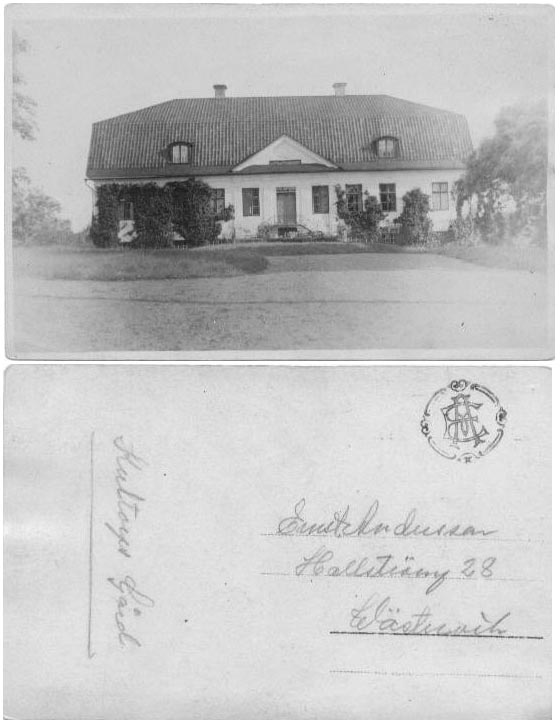 Hultungs Gård
Ernst Andersson
Hallströmg 28
Västervik